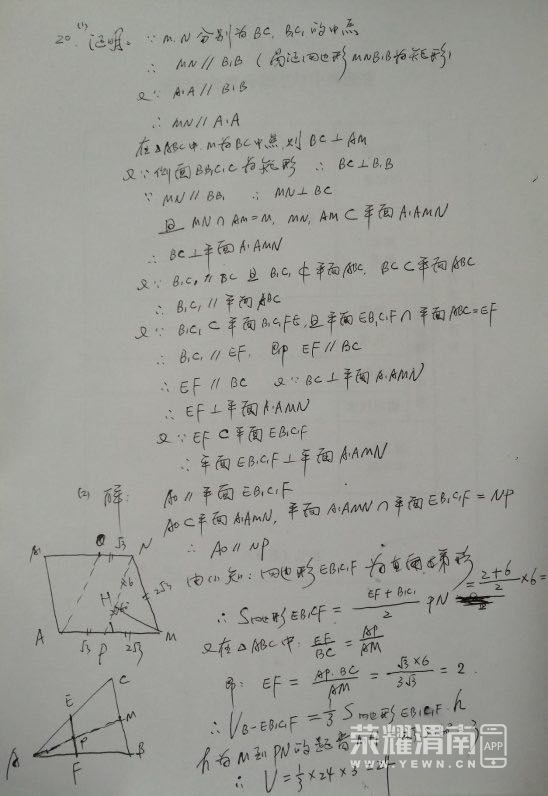 20. (1) 证明: ∵ M.N 分别为 BC, B₁C₁ 的中点
∴ MN // B₁B (易证四边形 MNB₁B为矩形)
又∵ A₁A // B₁B
∴ MN // A₁A
在△ABC中. M为BC中点, 则 BC⊥AM
又∵侧面 BB₁C₁C 为矩形 ∴ BC⊥B₁B
∵ MN // BB₁ ∴ MN⊥BC
且 MN∩AM=M, MN, AM⊂平面A₁AMN
∴ BC⊥平面A₁AMN
又∵ B₁C₁ // BC 且 B₁C₁⊄平面ABC, BC⊂平面ABC
∴ B₁C₁ // 平面ABC
又∵ B₁C₁⊂平面B₁C₁FE, 且平面EB₁C₁F∩平面ABC=EF
∴ B₁C₁ // EF, 即 EF // BC
∴ EF // BC 又∵BC⊥平面A₁AMN
∴ EF⊥平面A₁AMN
又∵ EF⊂平面EB₁C₁F
∴ 平面EB₁C₁F⊥平面A₁AMN
(2) 解: AO // 平面EB₁C₁F
AO⊂平面A₁AMN, 平面A₁AMN∩平面EB₁C₁F = NP
∴ AO // NP
A₁ O √3 N
6 2√3
H
A √3 P 2√3 M
由(1)知: 四边形EB₁C₁F为
∴ S四边形EB₁C₁F = (EF+B₁C₁)/2 PN = (2+6)/2 ×6 =
又在△ABC中. EF/BC = AP/AM
即: EF = AP·BC/AM = √3×6/3√3 = 2
∴ V B-EB₁C₁F = 1/3 S四边形EB₁C₁F·h
C
E
M
P
A F B
h为M到PN的距离
∴ V = 1/3×24×3=24
荣耀渭南 APP
WWW.YEWN.CN